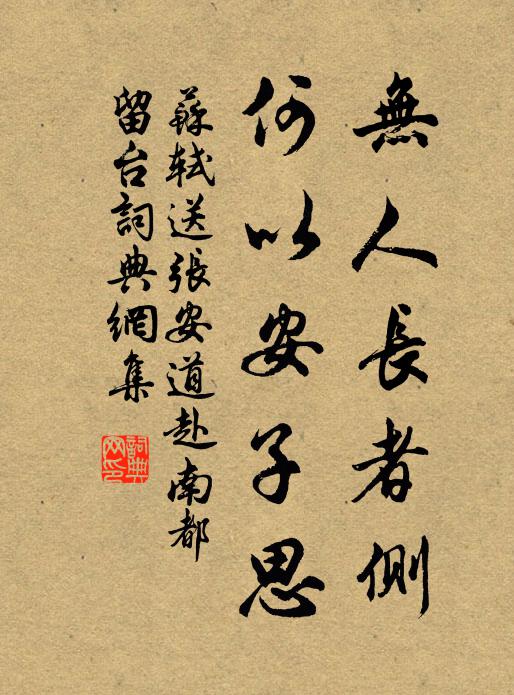 無人長者側
何以安子思
蘇軾送張安道赴南都
留台詞典網集
詞典
网印